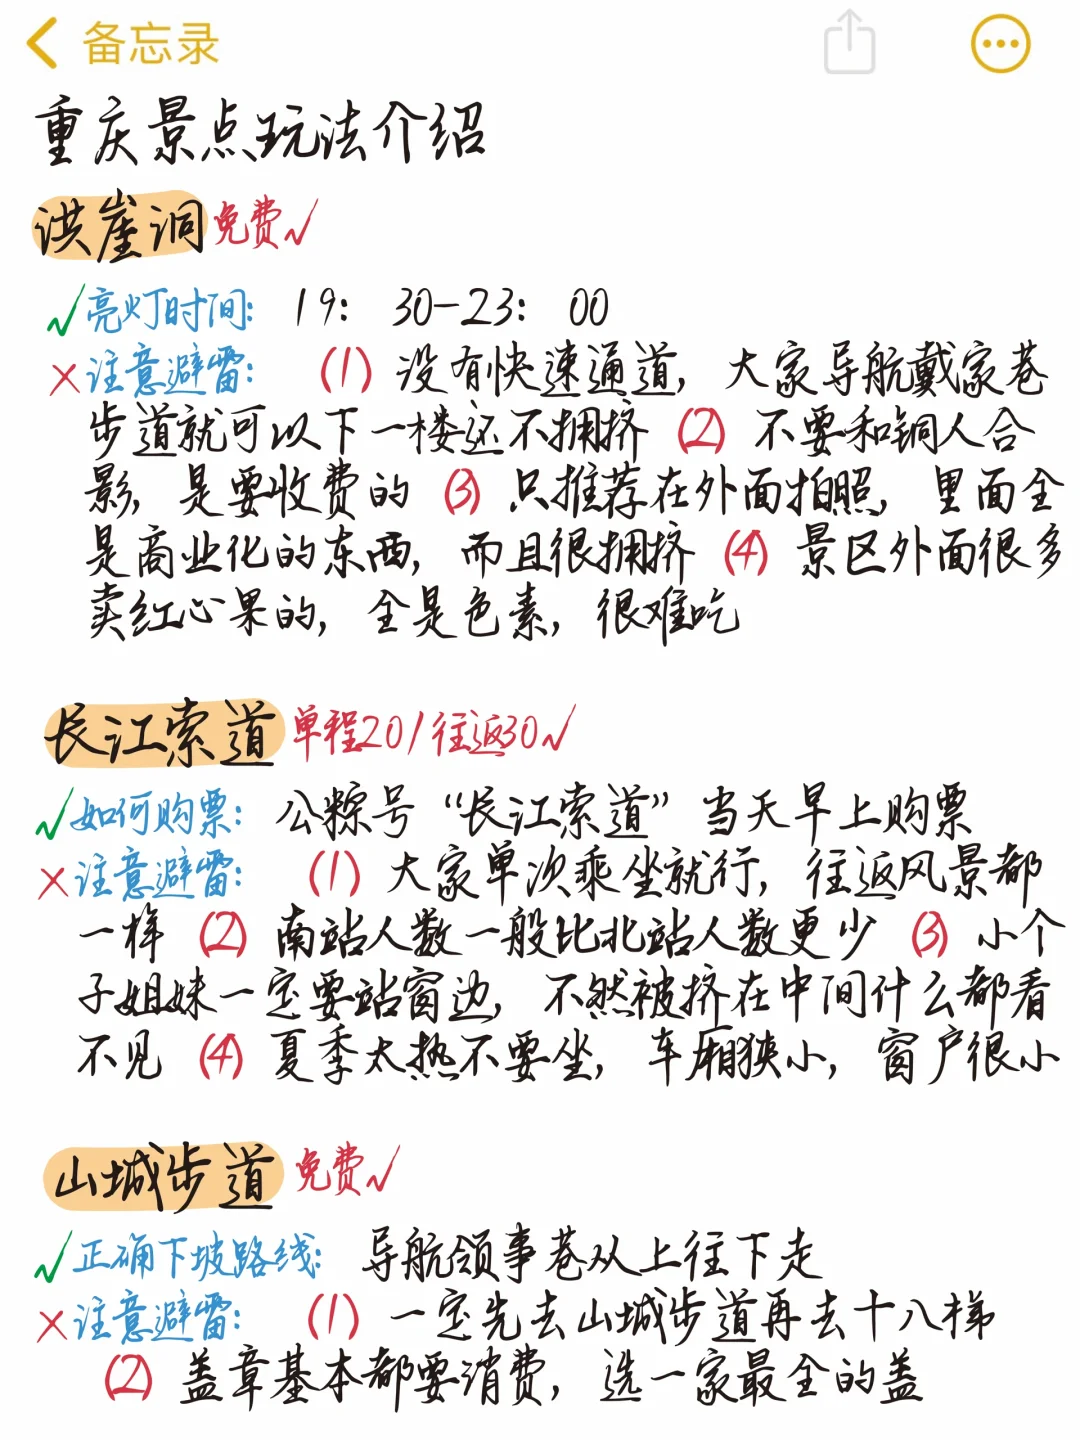 备忘录
重庆景点玩法介绍
洪崖洞 免费√
√亮灯时间: 19: 30-23: 00
×注意避雷: (1) 没有快速通道, 大家导航戴家巷
步道就可以下一楼还不拥挤 (2) 不要和铜人合
影, 是要收费的 (3) 只推荐在外面拍照, 里面全
是商业化的东西, 而且很拥挤 (4) 景区外面很多
卖红心果的, 全是色素, 很难吃
长江索道 单程20/往返30√
√如何购票: 公粽号 “长江索道” 当天早上购票
×注意避雷: (1) 大家单次乘坐就行, 往返风景都
一样 (2) 南站人数一般比北站人数更少 (3) 小个
子姐妹一定要站窗边, 不然被挤在中间什么都看
不见 (4) 夏季太热不要坐, 车厢狭小, 窗户很小
山城步道 免费√
√正确下坡路线: 导航领事巷从上往下走
×注意避雷: (1) 一定先去山城步道再去十八梯
(2) 盖章基本都要消费, 选一家最全的盖